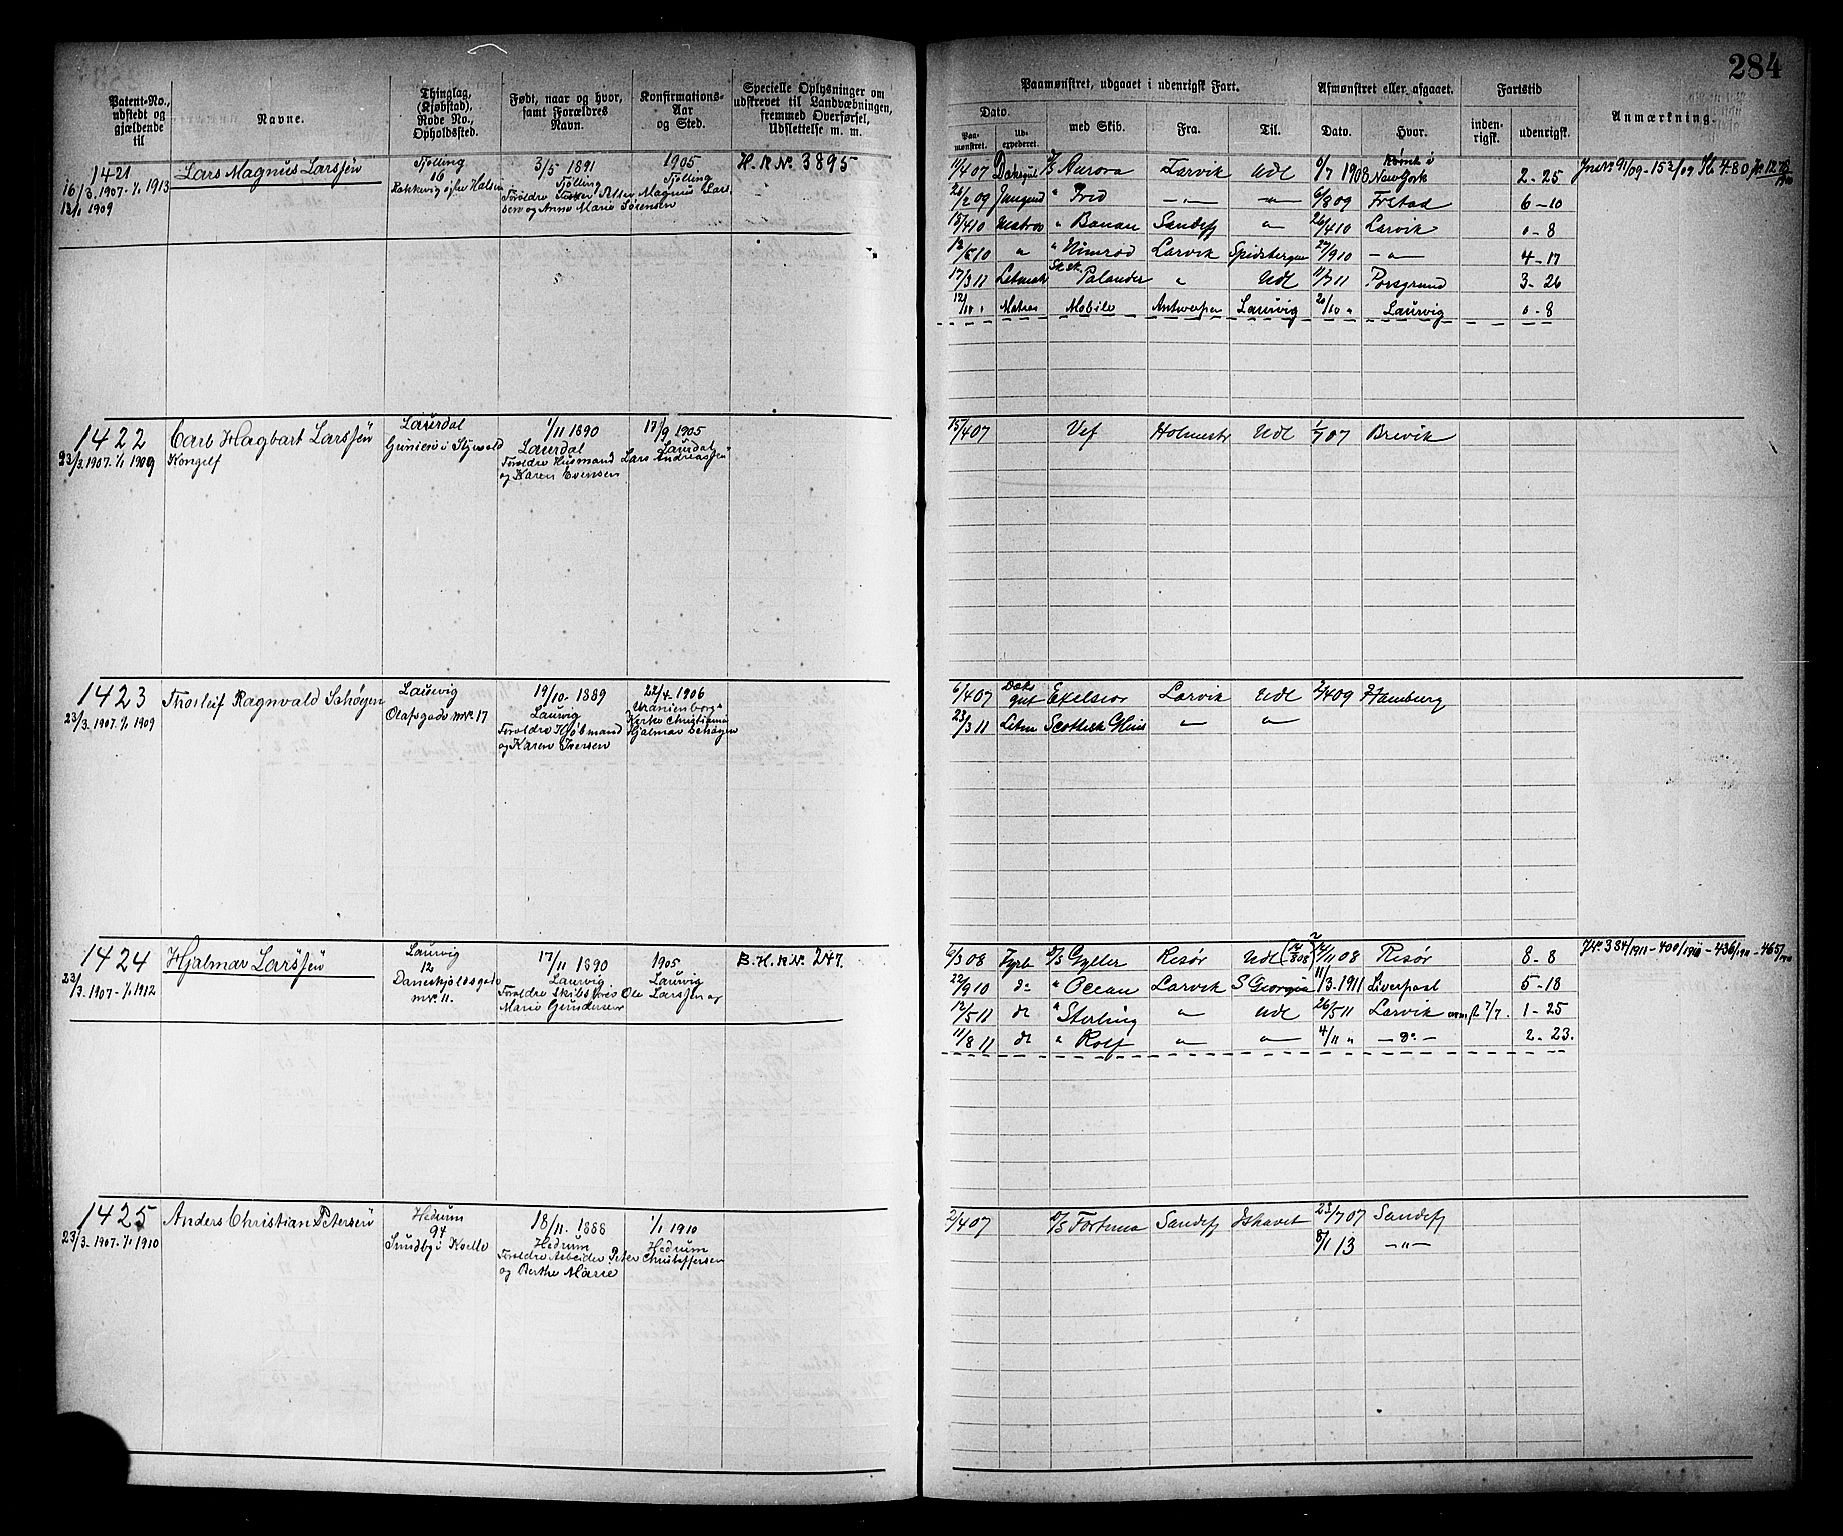 284
Patent-No., udstedt og gjældende til
Navne.
Thinglag, (Kjøbstad), Rode No., Opholdssted.
Født, naar og hvor, samt Forældres Navn.
Konfirmations-Aar og Sted.
Specielle Oplysninger om udskrevet til Landværningen, fremmed Overførsel, Udslettelse m. m.
Paamønstret, udgaaet i udenrigsk Fart.
Dato.
Paamønstret.
Udexpederet.
med Skib.
Fra.
Til.
Afmønstret eller afgaaet.
Dato.
Hvor.
Fartstid
indenrigsk.
udenrigsk.
Anmærkning.
1421
16/3. 1907-1/1 1913
12/1 1909
Lars Magnus Larssen
Tjölling
16
3/5 1891
Tjölling
Forældre
Petter Magnus Larssen og Anne Marie Sørensen
1905
Tjölling
H. R No. 3895
11/4 07 Aurora Larvik Udl 1908 New York 2-25
26/2 09 Jungmd " Fred -"- -"- 6/8 09 Frstad 6-10
15/4 10 Matros " Banan Sandefj " 26/4 10 Larvik 0-8
" " Nimrod Larvik Spidsbergen 27/9 10 -"- 4-17
17/3 11 Letmatr Palander " Udl 11/7 11 Porsgrund 3-26
12/10 " Matros Mobile Antwerpen Laurvig 20/10 " Laurvig 0-8
1422
23/3. 1907-1/1 1909
Carl Hagbart Larssen
Kongelf
Laurdal
1/11 1890
Laurdal
Forældre Husmand Lars Andreassen
og Karen Evensen
17/9 1905
Laurdal
15/4 07 Vef Holmestr Udl 1/7 07 Brevik
1423
23/3. 1907-1/1 1909
Thorleif Ragnvald Schøyen
Laurvig
Olafsgade No. 17
19/10 1889
Laurvig
Forældre Kjøbmand Hjalmar Schøyen
og Karen Iversen
22/4 1906
Uranienborg
Kirke Christiania
6/4 07 Dæksgut Exelsior Larvik Udl 2/4 09 Hamburg
23/3 11 Letm Scottish " "
1424
23/3. 1907-1/1 1912
Hjalmar Larssen
Laurvig
12
Daneskjoldsgade
No. 11.
17/11 1890
Laurvig
Forældre Ole Larssen og
Marie Gundersen
1905
Laurvig
B. H. R No. 247.
6/3 08 Fyrb Gyller Risør Udl 11 08 Risør 8-8
22/9 10 do " Ocean Larvik S Georgia 11/3. 1911 Liverpool 5-18
12/5 11 do " Sterling " Udl 26/5 11 Larvik 1-25
11/8 11 do " Rolf " " 4/11 " -do- 2-23.
1425
23/3. 1907-1/1 1910
Anders Christian Petersen
Hedrum
94
18/11. 1888
Hedrum
Forældre Arbeider Peter Christoffersen
og Berthe Marie
1/1 1910
Hedrum
2/4 07 Fortuna Sandefj Ishavet 23/7 07 Sandefj
8/1 13 -"-